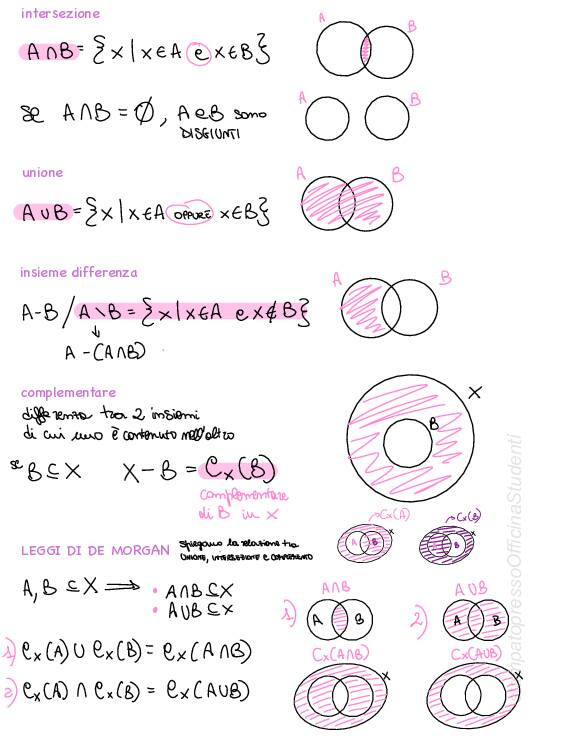 intersezione
A∩B = {x | x ∈ A e x ∈ B}
A B
se A∩B = Ø, A e B sono
DISGIUNTI
A B
unione
A∪B = {x | x ∈ A OPPURE x ∈ B}
A B
insieme differenza
A-B / A∖B = {x | x ∈ A e x ∉ B}
A - (A∩B)
A B
complementare
differenza tra 2 insiemi
di cui uno è contenuto nell'altro
se B ⊆ X X - B = Cx(B)
complementare
di B in X
X
B
Cx(A) Cx(B)
A B X
A B X
LEGGI DI DE MORGAN spiegano la relazione tra
UNIONE, INTERSEZIONE E COMPLEMENTO
A, B ⊆ X ⟹ • A∩B ⊆ X
• A∪B ⊆ X
1) Cx(A) ∪ Cx(B) = Cx(A∩B)
2) Cx(A) ∩ Cx(B) = Cx(A∪B)
A∩B
1) A B
Cx(A∩B)
X
A∪B
2) A B
Cx(A∪B)
X
mpatopressoOfficinaStudenti